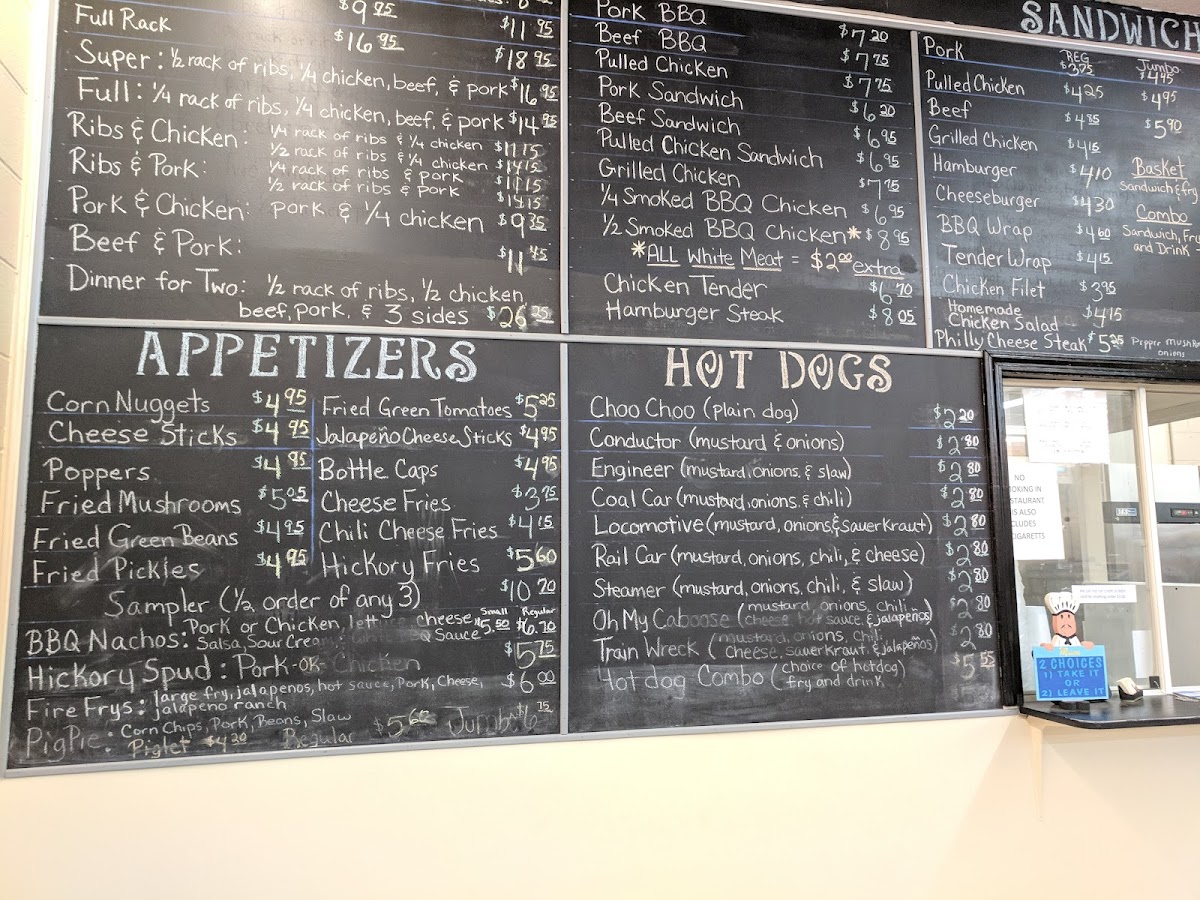 $9.95
Full Rack $11.95
$16.95 $18.95
Super: ½ rack of ribs, ¼ chicken, beef, & pork $16.95
Full: ¼ rack of ribs, ¼ chicken, beef, & pork $14.95
Ribs & Chicken: ¼ rack of ribs & ¼ chicken $11.15
½ rack of ribs & ¼ chicken $14.15
Ribs & Pork: ¼ rack of ribs & pork $11.15
½ rack of ribs & pork $14.15
Pork & Chicken: pork & ¼ chicken $9.35
Beef & Pork: $11.45
Dinner for Two: ½ rack of ribs, ½ chicken
beef, pork, & 3 sides $26.25
Pork BBQ $7.20
Beef BBQ $7.75
Pulled Chicken $7.75
Pork Sandwich $6.20
Beef Sandwich $6.95
Pulled Chicken Sandwich $6.95
Grilled Chicken $7.75
¼ Smoked BBQ Chicken $6.95
½ Smoked BBQ Chicken* $8.95
*ALL White Meat = $2.00 extra
Chicken Tender $6.70
Hamburger Steak $8.05
SANDWICH
REG Jumbo
Pork $3.75 $4.45
Pulled Chicken $4.25 $4.95
Beef $4.85 $5.90
Grilled Chicken $4.15
Hamburger $4.10
Cheeseburger $4.30
BBQ Wrap $4.60
Tender Wrap $4.15
Chicken Filet $3.95
Homemade
Chicken Salad $4.15
Philly Cheese Steak $5.25 Pepper mushR
onions
Basket
Sandwich & fry
Combo
Sandwich, Fry
and Drink
APPETIZERS
Corn Nuggets $4.95
Cheese Sticks $4.95
Poppers $4.95
Fried Mushrooms $5.05
Fried Green Beans $4.95
Fried Pickles $4.95
Fried Green Tomatoes $5.25
Jalapeño Cheese Sticks $4.95
Bottle Caps $4.95
Cheese Fries $3.75
Chili Cheese Fries $4.15
Hickory Fries $5.60
Sampler (½ order of any 3) $10.70
Small Regular
BBQ Nachos: Pork or Chicken, lettuce cheese $5.50 $6.70
Salsa, Sour Cream BBQ Sauce
Hickory Spud: Pork -or- Chicken $5.75
Fire Frys: large fry, jalapenos, hot sauce, Pork, Cheese, $6.00
jalapeno ranch
PigPie: Corn Chips, Pork, Beans, Slaw
Piglet $4.20 Regular $5.60 Jumbo $6.75
HOT DOGS
Choo Choo (plain dog) $2.20
Conductor (mustard & onions) $2.80
Engineer (mustard, onions, & slaw) $2.80
Coal Car (mustard, onions & chili) $2.80
Locomotive (mustard, onions & Sauer Kraut) $2.80
Rail Car (mustard, onions, chili, & cheese) $2.80
Steamer (mustard, onions, chili, & slaw) $2.80
Oh My Caboose (mustard, onions, chili,
cheese, hot sauce, & jalapeños) $2.80
Train Wreck (mustard, onions, chili,
cheese, sauerkraut, & jalapeños) $2.80
Hotdog Combo (choice of hotdog
fry and drink) $5.55
NO
MOKING IN
STAURANT
IS ALSO
CLUDES
CIGARETTS
Menu
2 CHOICES
1) TAKE IT
OR
2) LEAVE IT